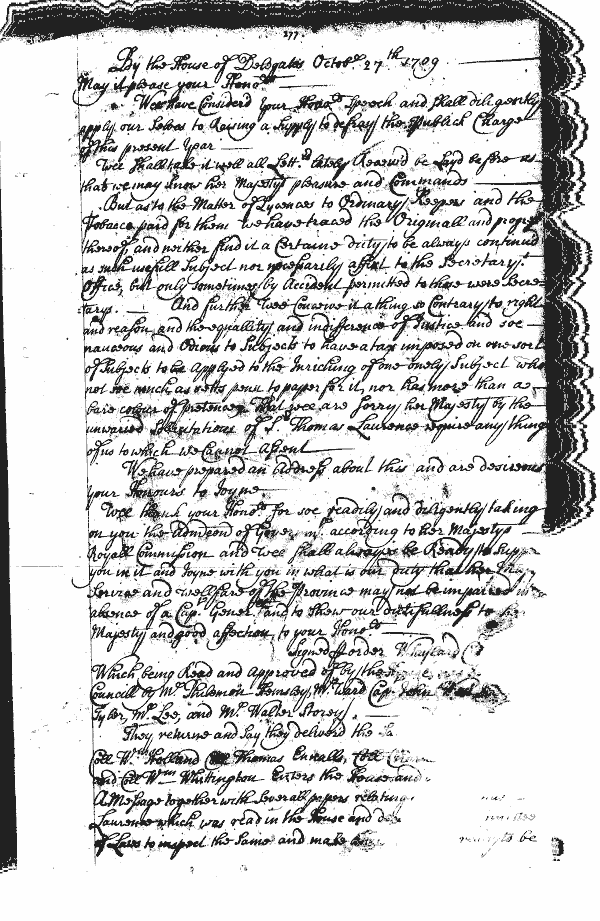 277
By the House of Delegates Octobr. 27th 1709
May it please your Honrs.
Wee have Considerd your Honrs. Speech and shall diligently
apply our Selves to Raising a Supply to defray the Publick Charge
of this present year
Wee shall take it well all Lettrs. lately Received be Layd before us
that we may know her Majestys pleasure and Commands
But as to the Matter of Lycences to Ordinary Keepers and the
Tobacco paid for them we have traced the Originall and progress
thereof, and neither find it a Certaine duty to be always continued
as such usefull Subject nor necessarily affixt to the Secretarys.
Office, but only sometimes by Accident permitted to those were Secre
tarys. And further Wee Conceive it a thing so Contrary to right
and reason and the equallity and indifference of Justice and soe
nauceous and Odious to Subjects to have a tax imposed on one sort
of Subjects to be Applyed to the Inriching of one onely Subject who
not soe much as netts penn to paper for it, nor has more than a
bare colour of pretence That wee are sorry her Majesty by the
unwaried Sollicitations of Sr. Thomas Laurence require any thing
of us to which we cannot Assent
We have prepared an Address about this and are desireous
your Honours to Joyne
Wee thank your Honrs. for soe readily and diligently taking
on you the Admcon of Governmt. according to her Majestys
Royall Commission and Wee shall always be Ready to supp
you in it and Joyne with you in what is our duty that her
Service and wellfare of the Province may not be impaired
absence of a Cap. Generll. and to shew our dutifullness to
Majesty and good affection to your Honrs.
Signed p order
Which being Read and Approved of by the
Councill by Mr. Philemon Hemsley, Mr. Ward Cap. John
Tyler, Mr. Lee, and Mr. Walter Storey.
They returne and say they delivered the
Coll Wm. Holland Coll Thomas Ennalls, Coll
and Coll Wm. Whittington Enters the House and
A Message together with Severall papers relating
Laurence which was read in the House and
of Laws to inspect the Same and make
ready to be